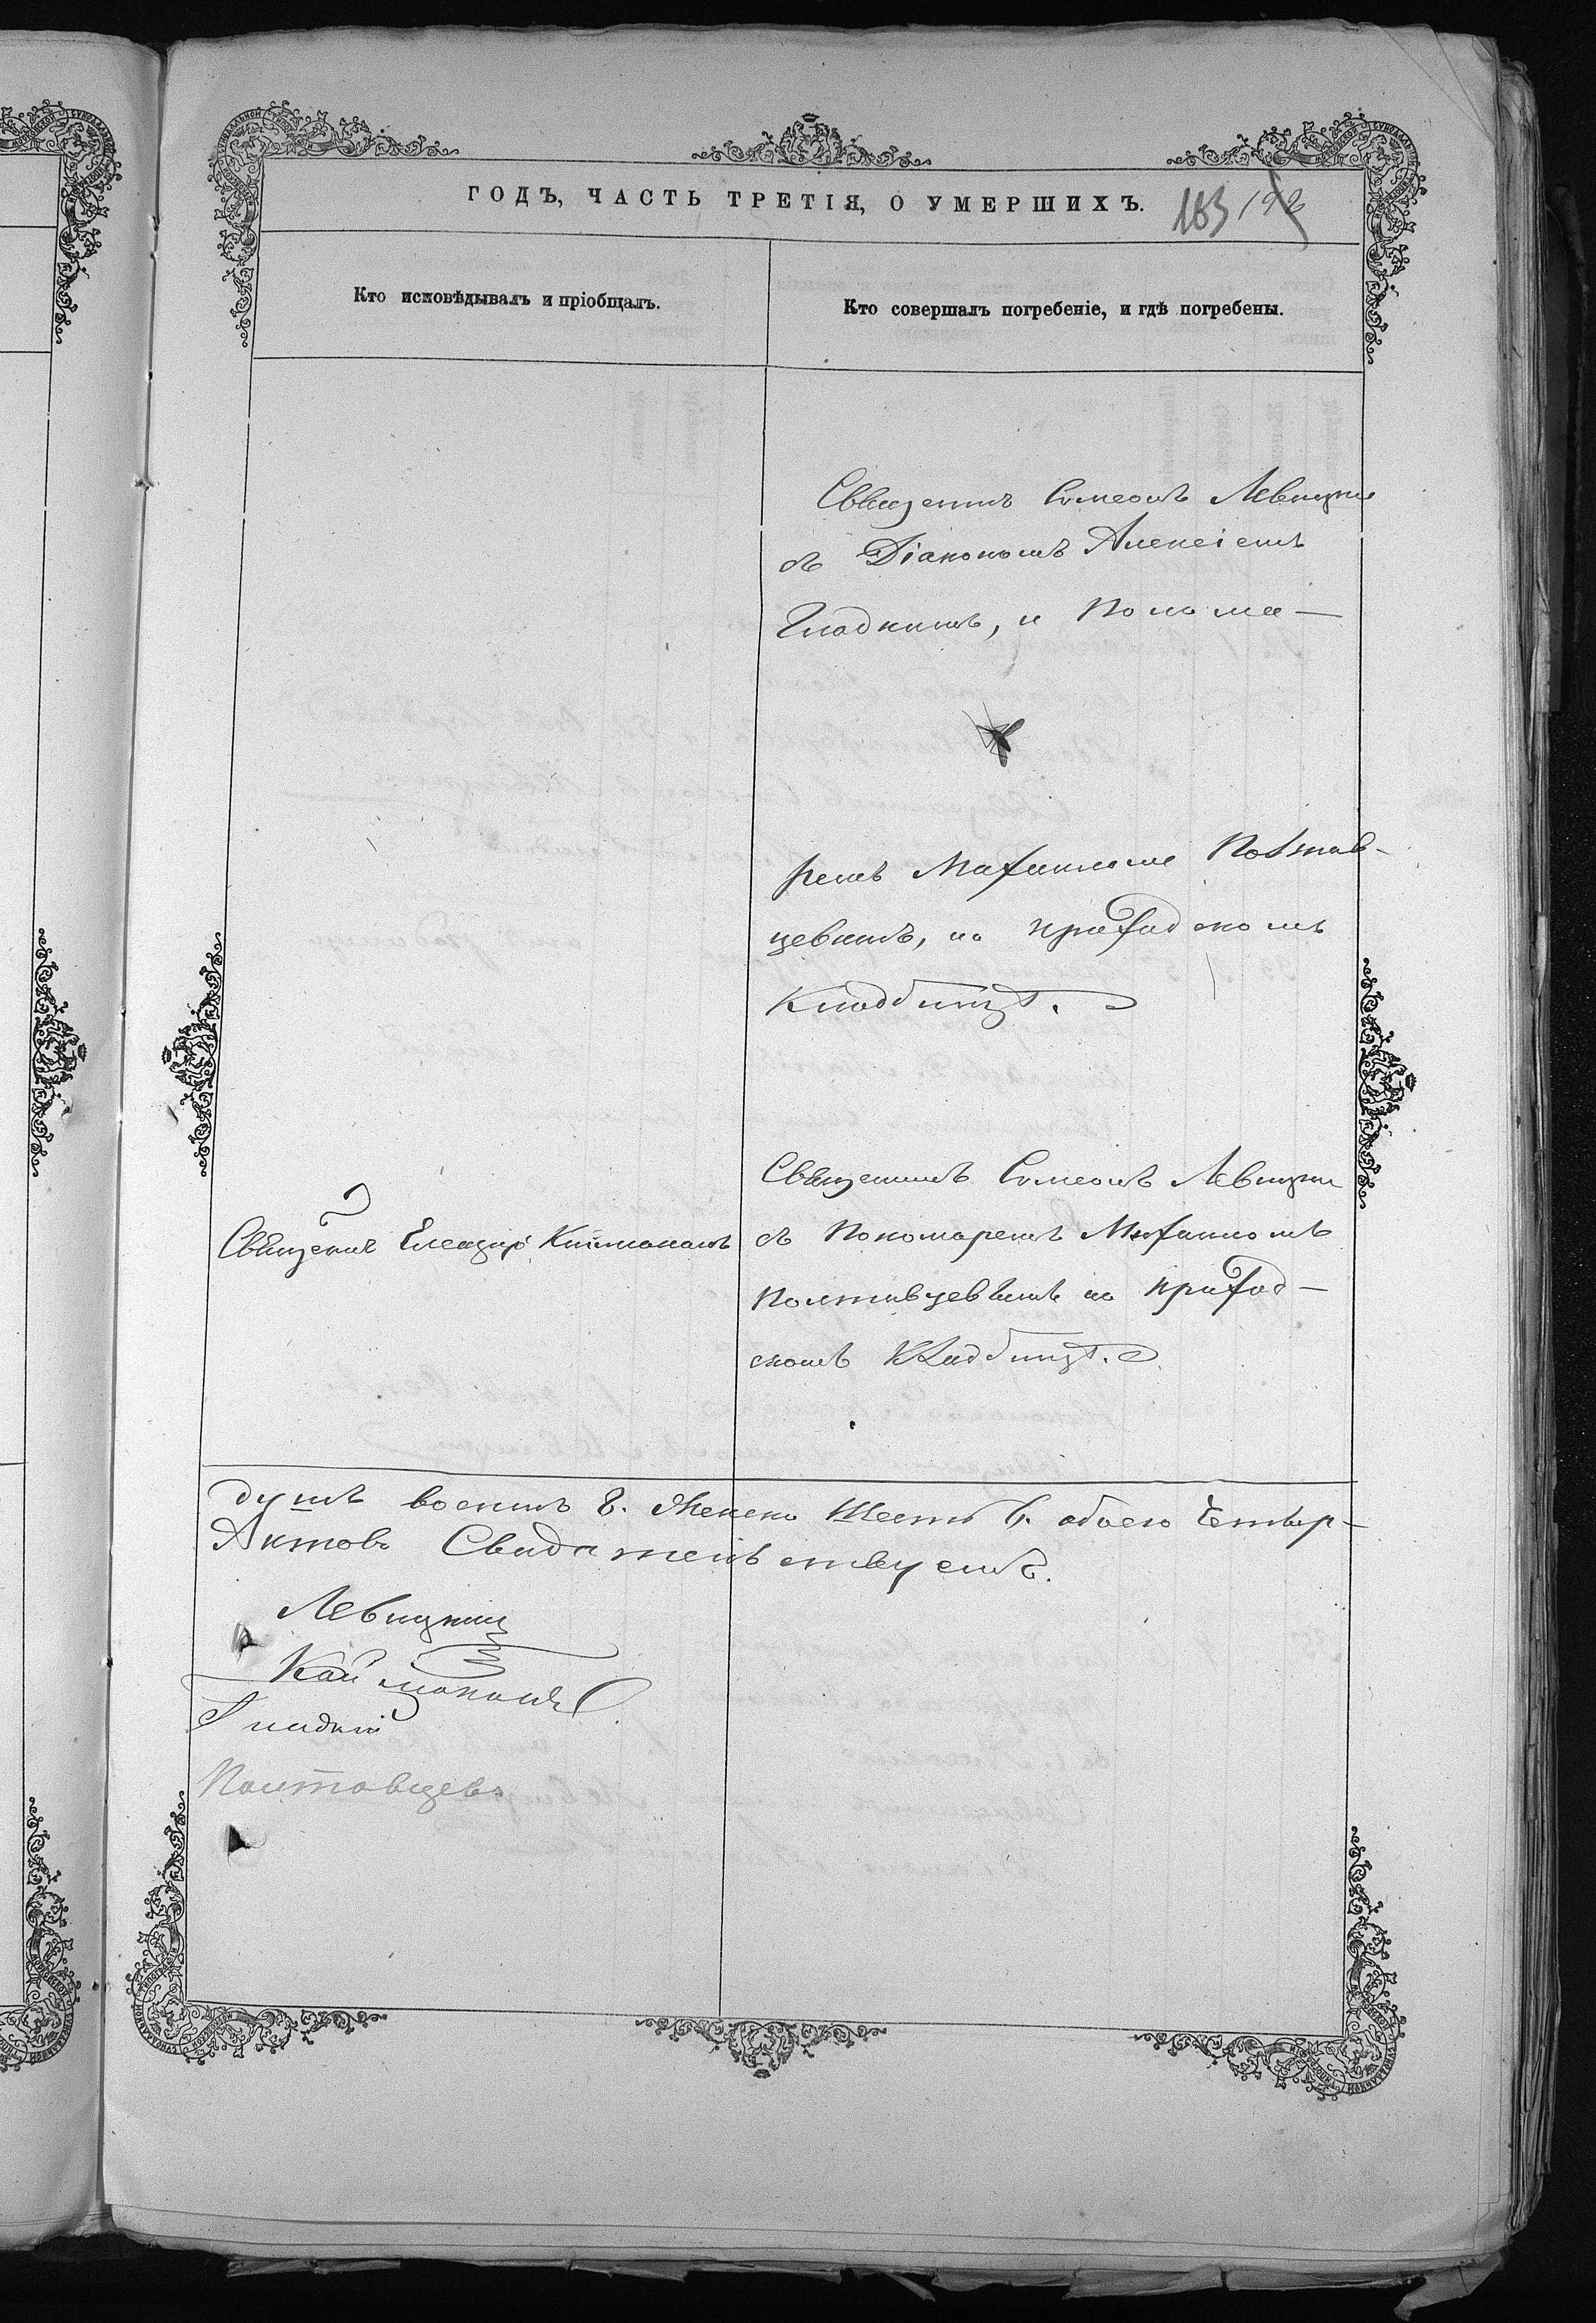 ГОДЪ, ЧАСТЬ ТРЕТІЯ, О УМЕРШИХЪ.
183
Кто исповѣдывалъ и пріобщалъ.
Кто совершалъ погребеніе, и гдѣ погребены.
Священникъ Симеонъ Левицкій
съ Діакономъ Алексіемъ
Гладкимъ, и Понома-
ремъ Михаиломъ Полтав-
цевымъ, на приходскомъ
Кладбищѣ.
Священникъ Елеазаръ Каймаканъ
Священникъ Симеонъ Левицкій
съ Пономаремъ Михаиломъ
Полтавцевымъ на приход-
скомъ Кладбищѣ.
душъ восемь 8. Женска Шесть 6. обоего Четыр-
Актовъ Свидѣтельствуемъ.
Левицкий
Каймаканъ
Гладкій
Полтавцевъ